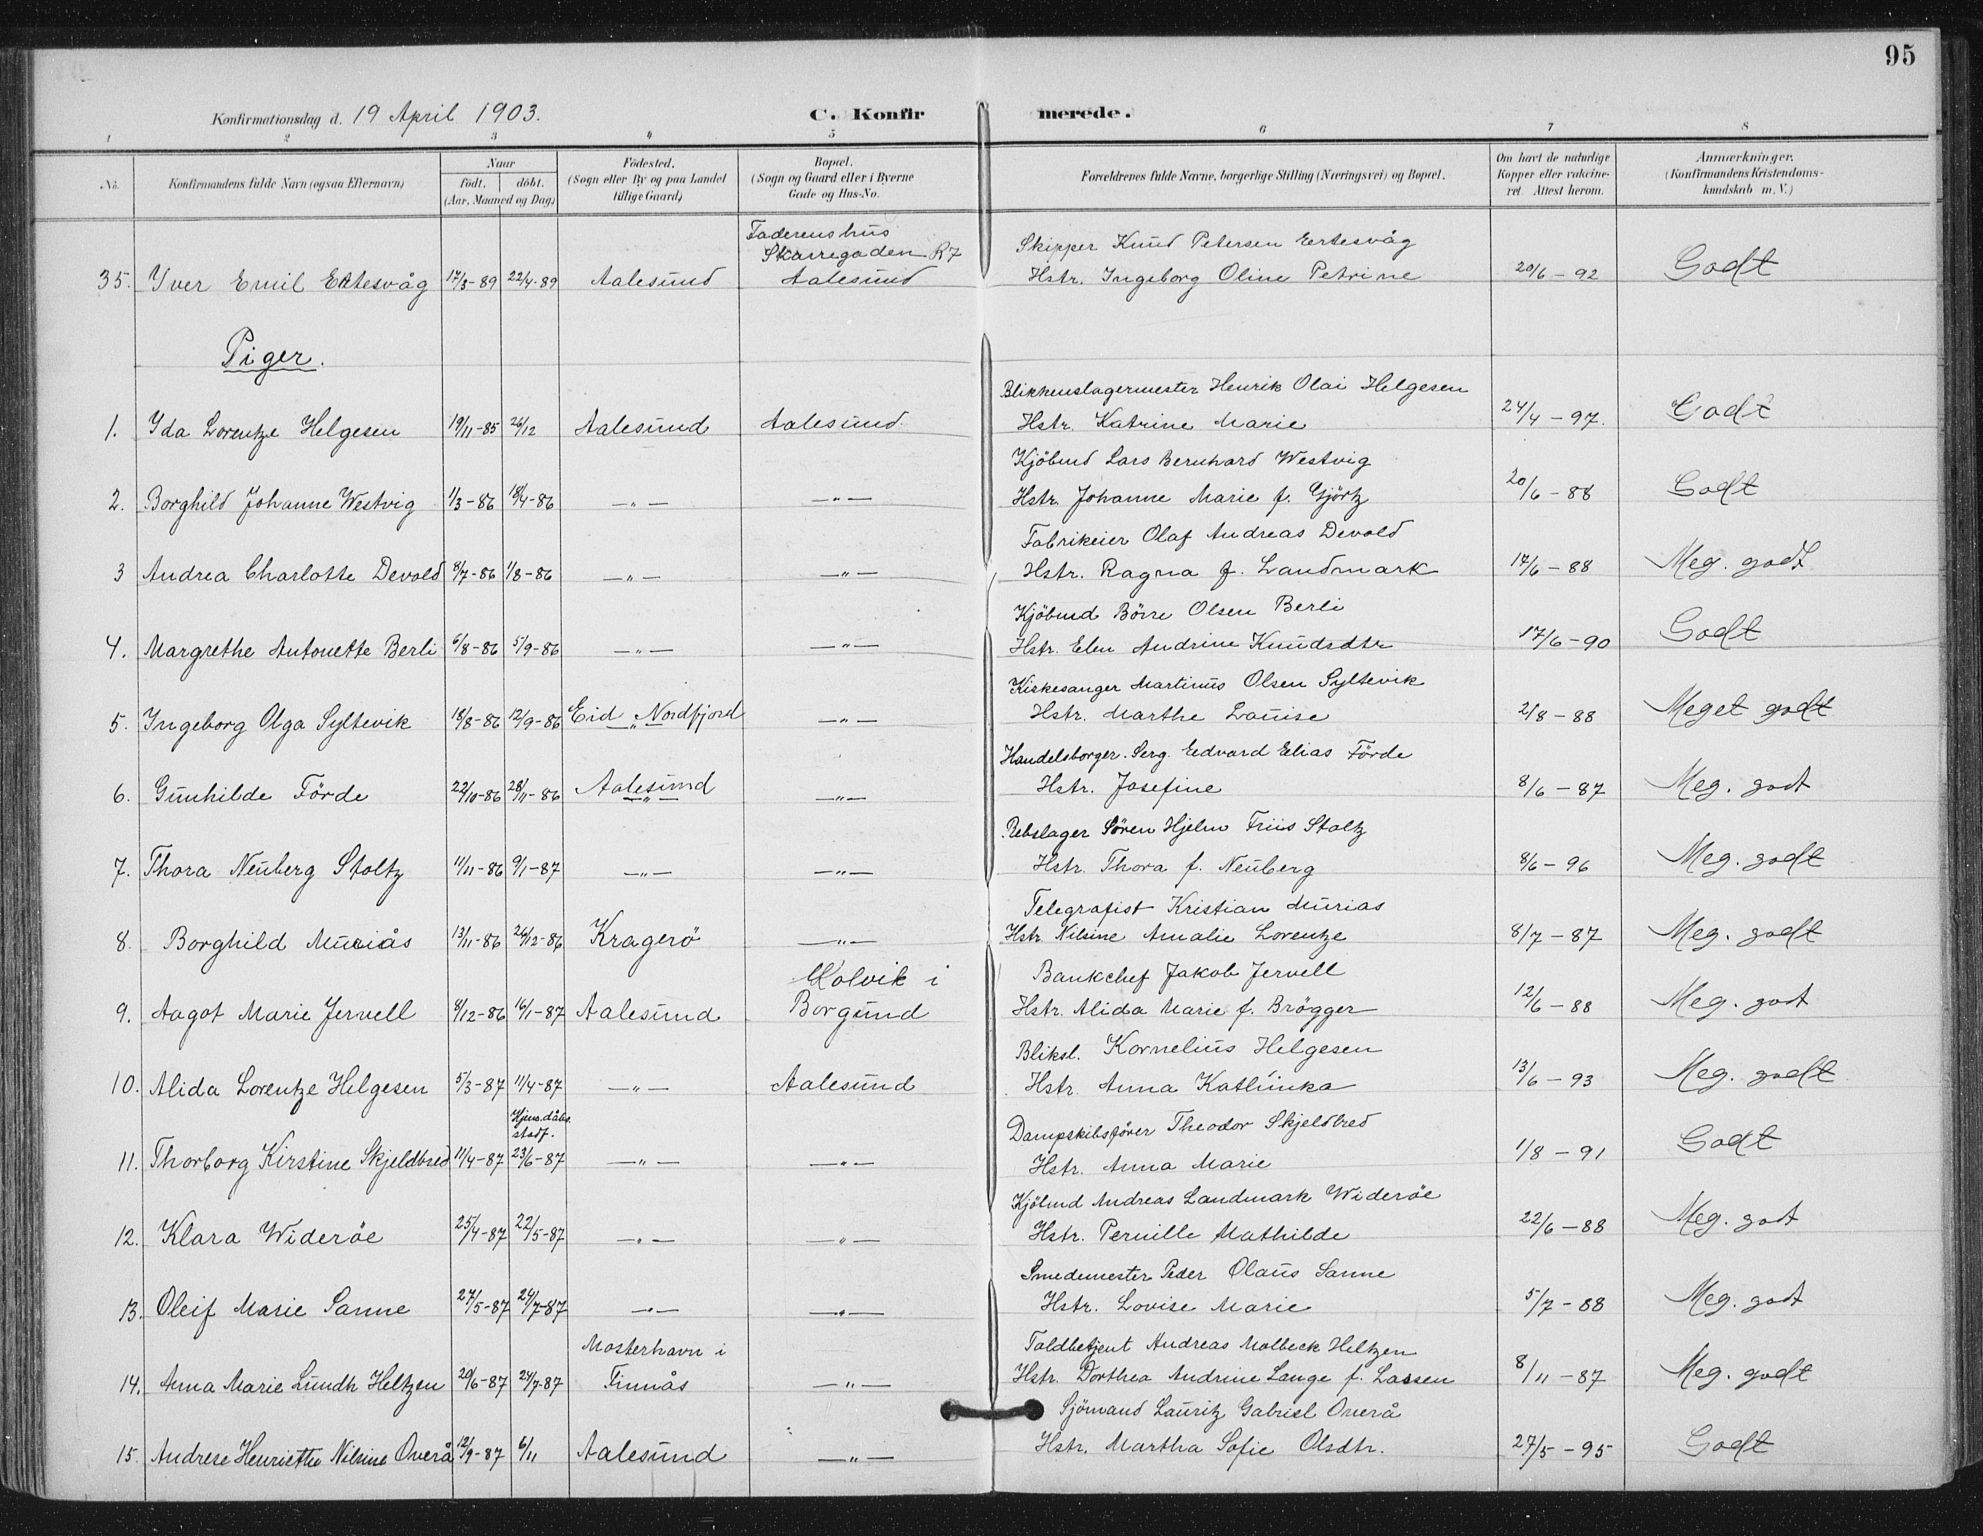 95
Konfirmationsdag d. 19 April 1903. C. Konfir merede.
1 2 3 4 5 6 7 8
No. Konfirmandens fulde Navn (ogsaa Efternavn) Naar født. døbt. (Aar, Maaned og Dag) Fødested. (Sogn eller By og paa Landet tillige Gaard) Bopæl. (Sogn og Gaard eller i Byerne Gade og Hus-No. Forældrenes fulde Navne, borgerlige Stilling (Næringsvei) og Bopæl. Om havt de naturlige Kopper eller vakcineret. Attest herom. Anmærkninger. (Konfirmandens Kristendomskundskab m. V.)
Faderens hus
Skarregaden R7 Skipper Knud Petersen Eertesvåg
35. Yver Emil Ertesvåg 17/3-89 22/4-89 Aalesund Aalesund Hstr. Ingeborg Oline Petrine 20/6-92 Godt
Piger.
Blikkenslagermester Henrik Olai Helgesen
1. Yda Lorentze Helgesen 19/11-85 26/12 Aalesund Aalesund. Hstr. Katrine Marie 24/4-97. Godt
Kjöbmd Lars Bernhard Westvig
2. Borghild Johanne Westvig 1/3-86 18/4-86 —"— —"— Hstr. Johanne Marie f. Gjörtz 20/6-88 Godt
Fabrikeier Olaf Andreas Devold
3 Andrea Charlotte Devold 8/7-86 1/8-86 —"— —"— Hstr. Ragna f. Landmark 17/6-88 Meg. godt
Kjöbmd Börre Olsen Berli
4. Margrethe Antonette Berli 6/8-86 5/9-86 —"— —"— Hstr. Elen Andrine Knudsdtr 17/6-90 Godt
Kirkesanger Martinus Olsen Syltevik
5. Ingeborg Olga Syltevik 18/8-86 12/9-86 Eid Nordfjord —"— —"— Hstr. Marthe Louise 2/8-88 Meget godt
Handelsborger. Serg. Eedvard Elias Förde
6. Gunhilde Förde 22/10-86 28/11-86 Aalesund —"— —"— Hstr. Josefine 8/6-87 Meg. godt
Rebslager Sören Hjelm Friis Stoltz
7. Thora Neuberg Stoltz 11/11-86 9/1-87 —"— —"— Hstr. Thora f. Neuberg 8/6-96 Meg. godt
Telegrafist Kristian Murias
8. Borghild Muriås 13/11-86 26/12-86 Kragerö —"— Hstr Nilsine Amalie Lorentze 8/7-87 Meg. godt
Kolvik i Bankchef Jakob Jervell
9. Aagot Marie Jervell 8/12-86 16/1-87 Aalesund Borgund Hstr. Alida Marie f. Brögger 12/6-88 Meg. godt
Bliksl. Kornelius Helgesen
10. Alida Lorentze Helgesen 5/3-87 11/4-87 —"— Aalesund Hstr. Anna Kathinka 13/6-93 Meg. godt
Hjem.dåbs. stadf. Dampskibsförer Theodor Skjeldbred
11. Thorborg Kirstine Skjeldbred 11/4-87 23/6-87 —"— —"— Hstr. Anna Marie 1/8-91 Godt
Kjöbmd Andreas Landmark Wideröe
12. Klara Wideröe 25/4-87 22/5-87 —"— —"— Hstr. Pernille Mathilde 22/6-88 Meg. godt
Smedemester Peder Olaus Sanne
13. Oleif Marie Sanne 27/5-87 24/7-87 —"— —"— Hstr. Lovise Marie 5/7-88 Meg. godt
Mosterhavn i Toldbetjent Andreas Molbeck Heltzen
14. Anna Marie Lundh Heltzen 20/6-87 24/7-87 Finnås —"— Hstr. Dorthea Andrine Lange f. Lassen 8/11-87 Meg. godt
Sjömand Lauritz Gabriel Overå
15. Andrese Henriette Nilsine Overå 12/9-87 6/11 Aalesund —"— Hstr. Martha Sofie Olsdtr. 27/5-95 Godt